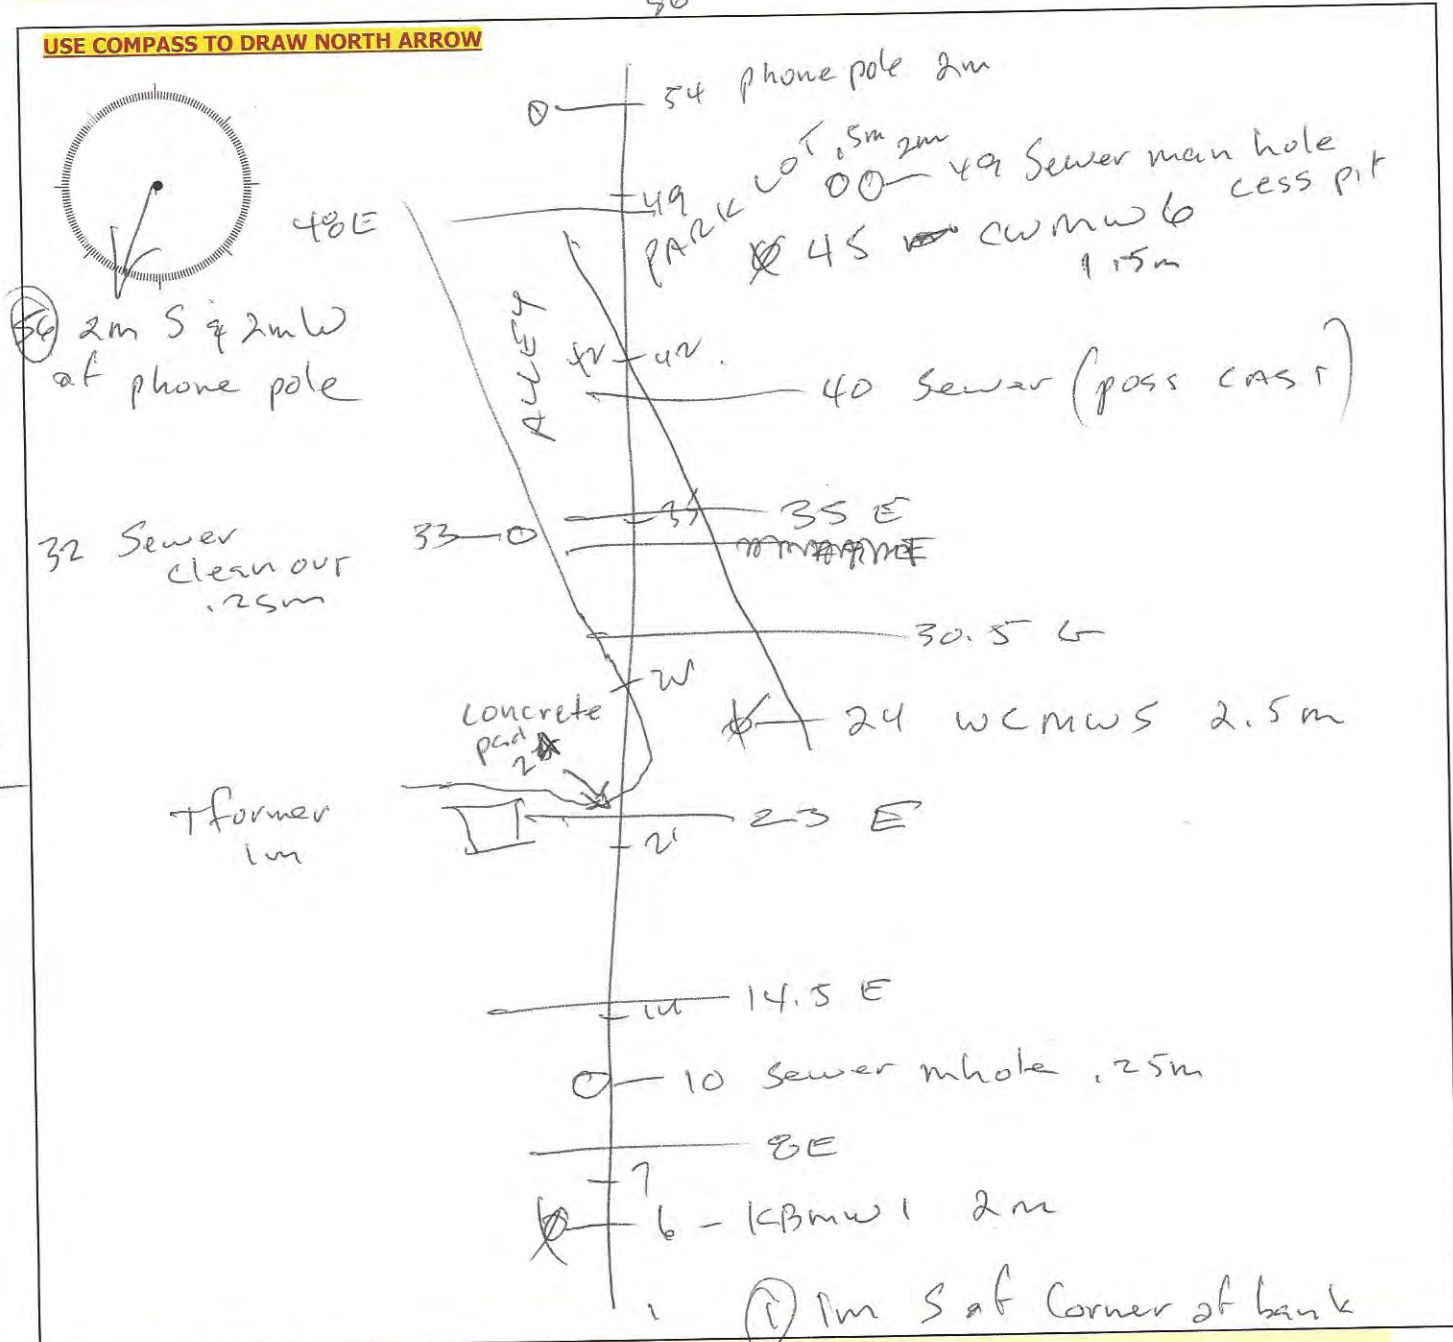 USE COMPASS TO DRAW NORTH ARROW
54 phone pole 2m
PARK LOT .5m 2m
49 Sewer man hole
cess pit
49
48E
45 CWMW6
1.5m
56 2m S & 2m W
of phone pole
ALLEY
42
42.
40 Sewer (poss CAST)
35
35 E
32 Sewer
clean out
.25m
33
30.5 G
28
concrete
pad
24 WCMW5 2.5m
Tformer
1m
23 E
21
14.5 E
14
10 Sewer mhole .25m
8E
7
6 - KBMW1 2m
1
① 1m S of Corner of bank